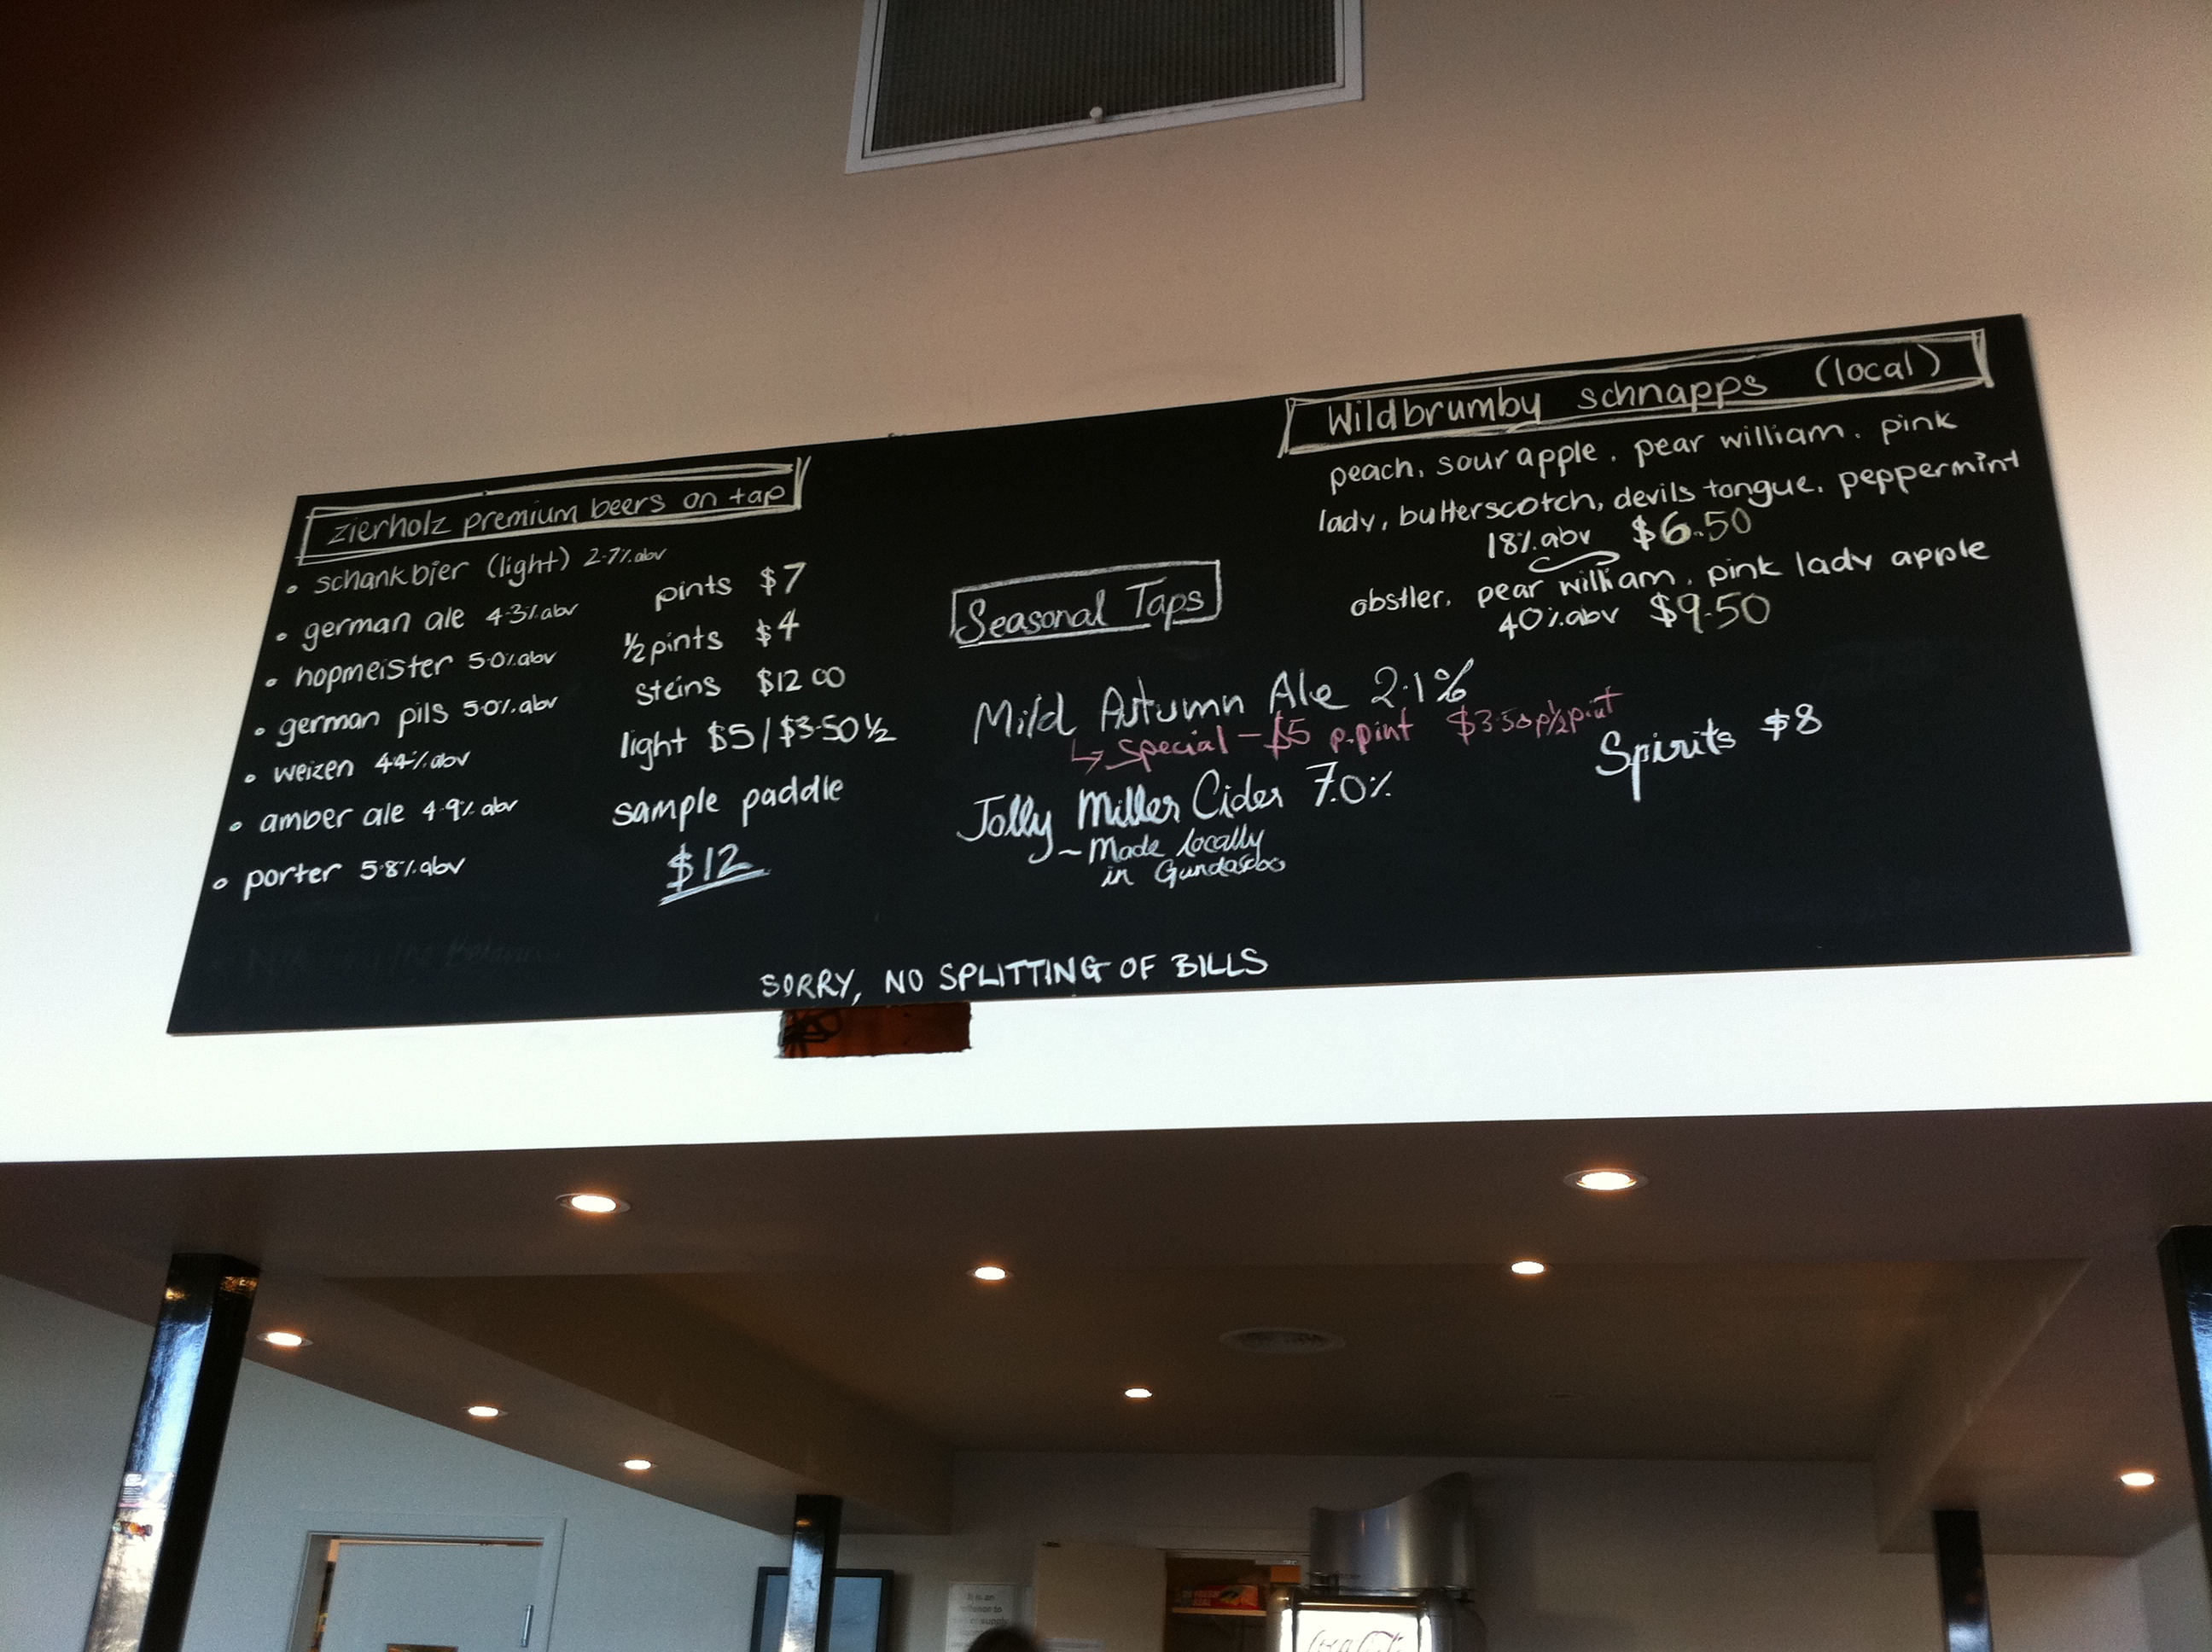 zierholz premium beers on tap
schankbier (light) 2.7%.abv
german ale 4.3%.abv
hopmeister 5.0%.abv
german pils 5.0%.abv
weizen 4.4%.abv
amber ale 4.9%.abv
porter 5.8%.abv
pints $7
½ pints $4
steins $12 00
light $5 / $3.50 ½
sample paddle
$12
Seasonal Taps
Mild Autumn Ale 2.1%
↳ special - $5 p.pint $3.50 p/½ pint
Jolly Miller Cider 7.0%
~ Made locally
in
Wildbrumby schnapps (local)
peach, sour apple, pear william, pink
lady, butterscotch, devils tongue, peppermint
18%.abv $6.50
obstler, pear william, pink lady apple
40%.abv $9.50
Spirits $8
SORRY, NO SPLITTING OF BILLS
It is an
Coca-Cola